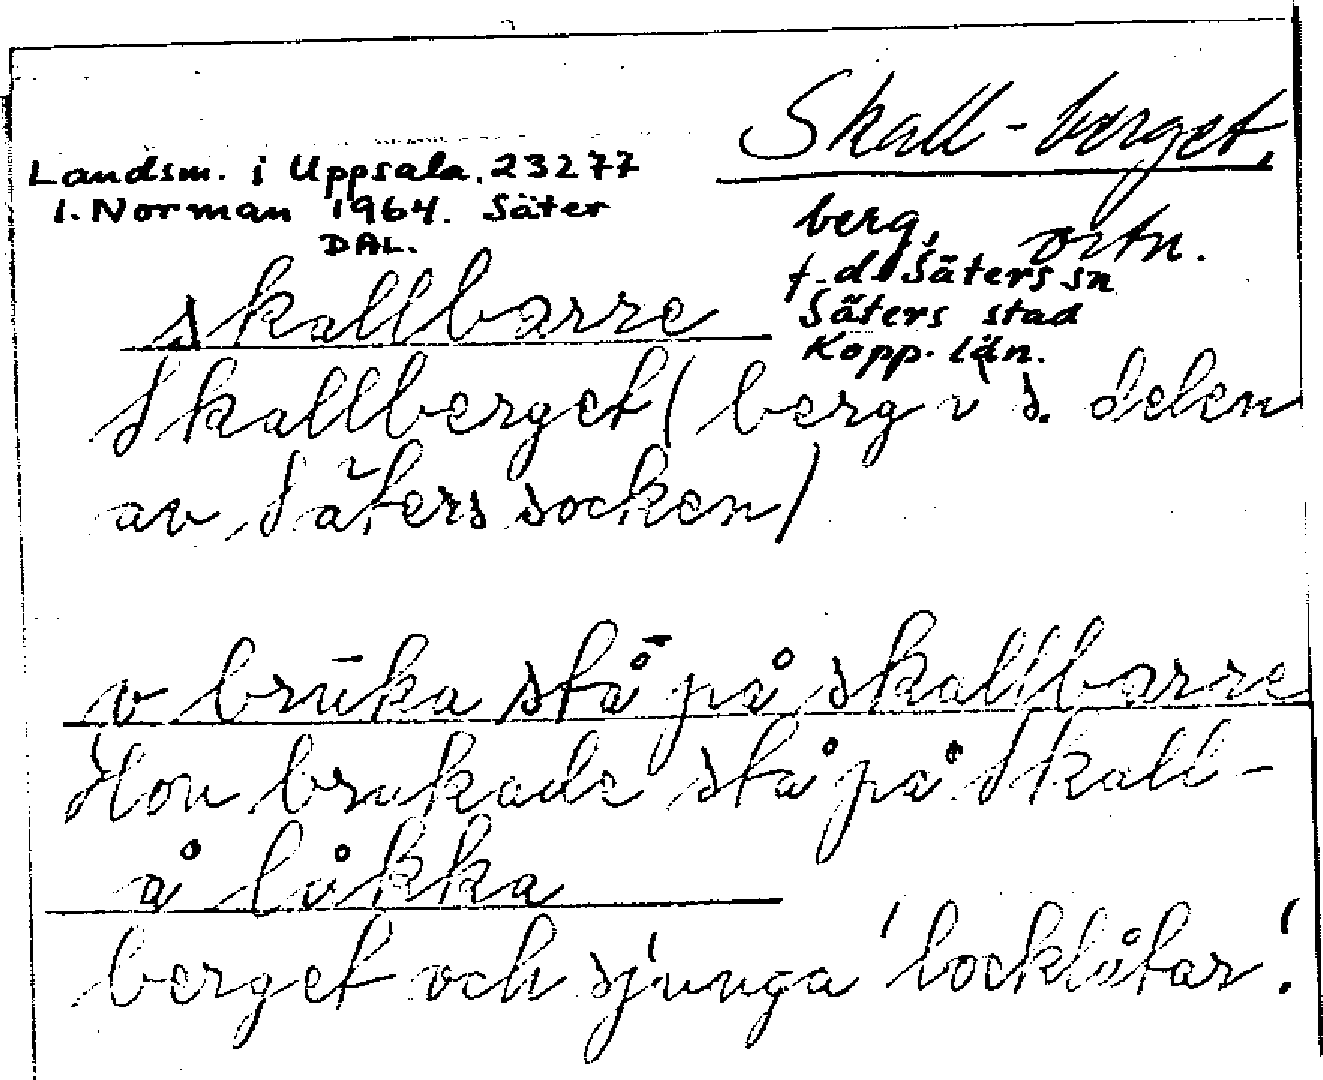 Skall-berget.
Landsm. i Uppsala. 23277
I. Norman 1964. Säter
DAL.
berg, ortn.
f.d. Säters sn
Säters stad
Kopp. län.
skallbarre
Skallberget (berg i s. delen
av Säters socken)
o brūka stå̄ på skallbarre
Hon brukade stå på Skall-
å låkka
berget och sjunga 'locklåtar!